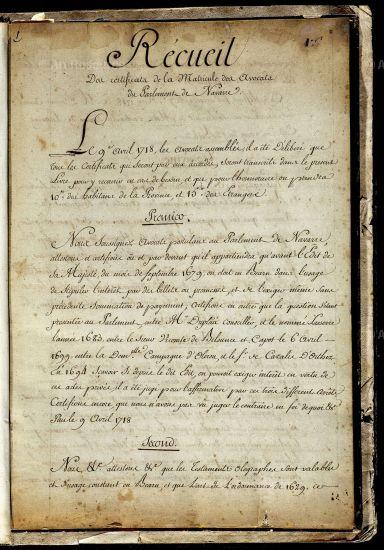 1
Récueil
Des certificats de la Matricule des Avocats
du Parlement de Navarre
Le 9e Avril 1718, les Avocats assemblés, il a été Délibéré que
tous les Certificats qui seront par eux accordés, seront transcrits dans le présent
Livre pour y recourir en cas de besoin et que pour l'honnoraire on prendra
10tt des habitans de la Province, et 15tt des Etrangers
Premier.
Nous soussignés Avocats postulans au Parlement de Navarre,
attestons et certifions où et par devant qu'il appartiendra qu'avant l'Edit de
Sa Majesté, du mois de Septembre 1679, on étoit en Béarn dans l'usage
de stipuler l'intérêt, par des billets ou promesses et de l'exiger même sans
précédente sommation de payement; certifions en outre que la question s'étant
présentée au Parlement, entre Mr Conseiller, et le nommé
l'année 1683, entre le Sieur Vicomte de Belsunce et Capot le 6 Avril
1699, entre la Demlle Campagne d'Oloron, et le Sr de Cavalier d'Orthez
En 1694 Sçavoir si depuis le dit Edit, on pouvoit exiger intérêt en vertu de
ces actes privés il a été jugé pour l'affirmative par ces trois différents Arrêts
Certifions encore, que nous n'avons pas vu juger le contraire en foi de quoi &c
Pau le 9 Avril 1718
Second.
Nous &c attestons &c que les Testaments Olographes sont valables
et d'usage constant en Béarn et que l'art. de l'ordonnance de 1629, ce